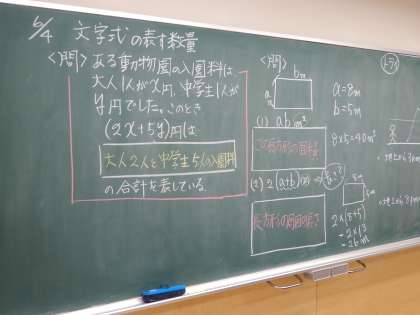 6/4 文字式の表す数量
<問> ある動物園の入園料は
大人1人がx円、中学生1人が
y円でした。このとき
(2x+5y)円は
大人2人と中学生5人の入園料
の合計を表している。
<問>
bm
am
(1) ab m²
長方形の面積
(2) 2(a+b)m
長方形の周囲の長さ
a=8m
b=5m
8×5=40m²
8m
5m
2×(8+5)
=2×13
=26m